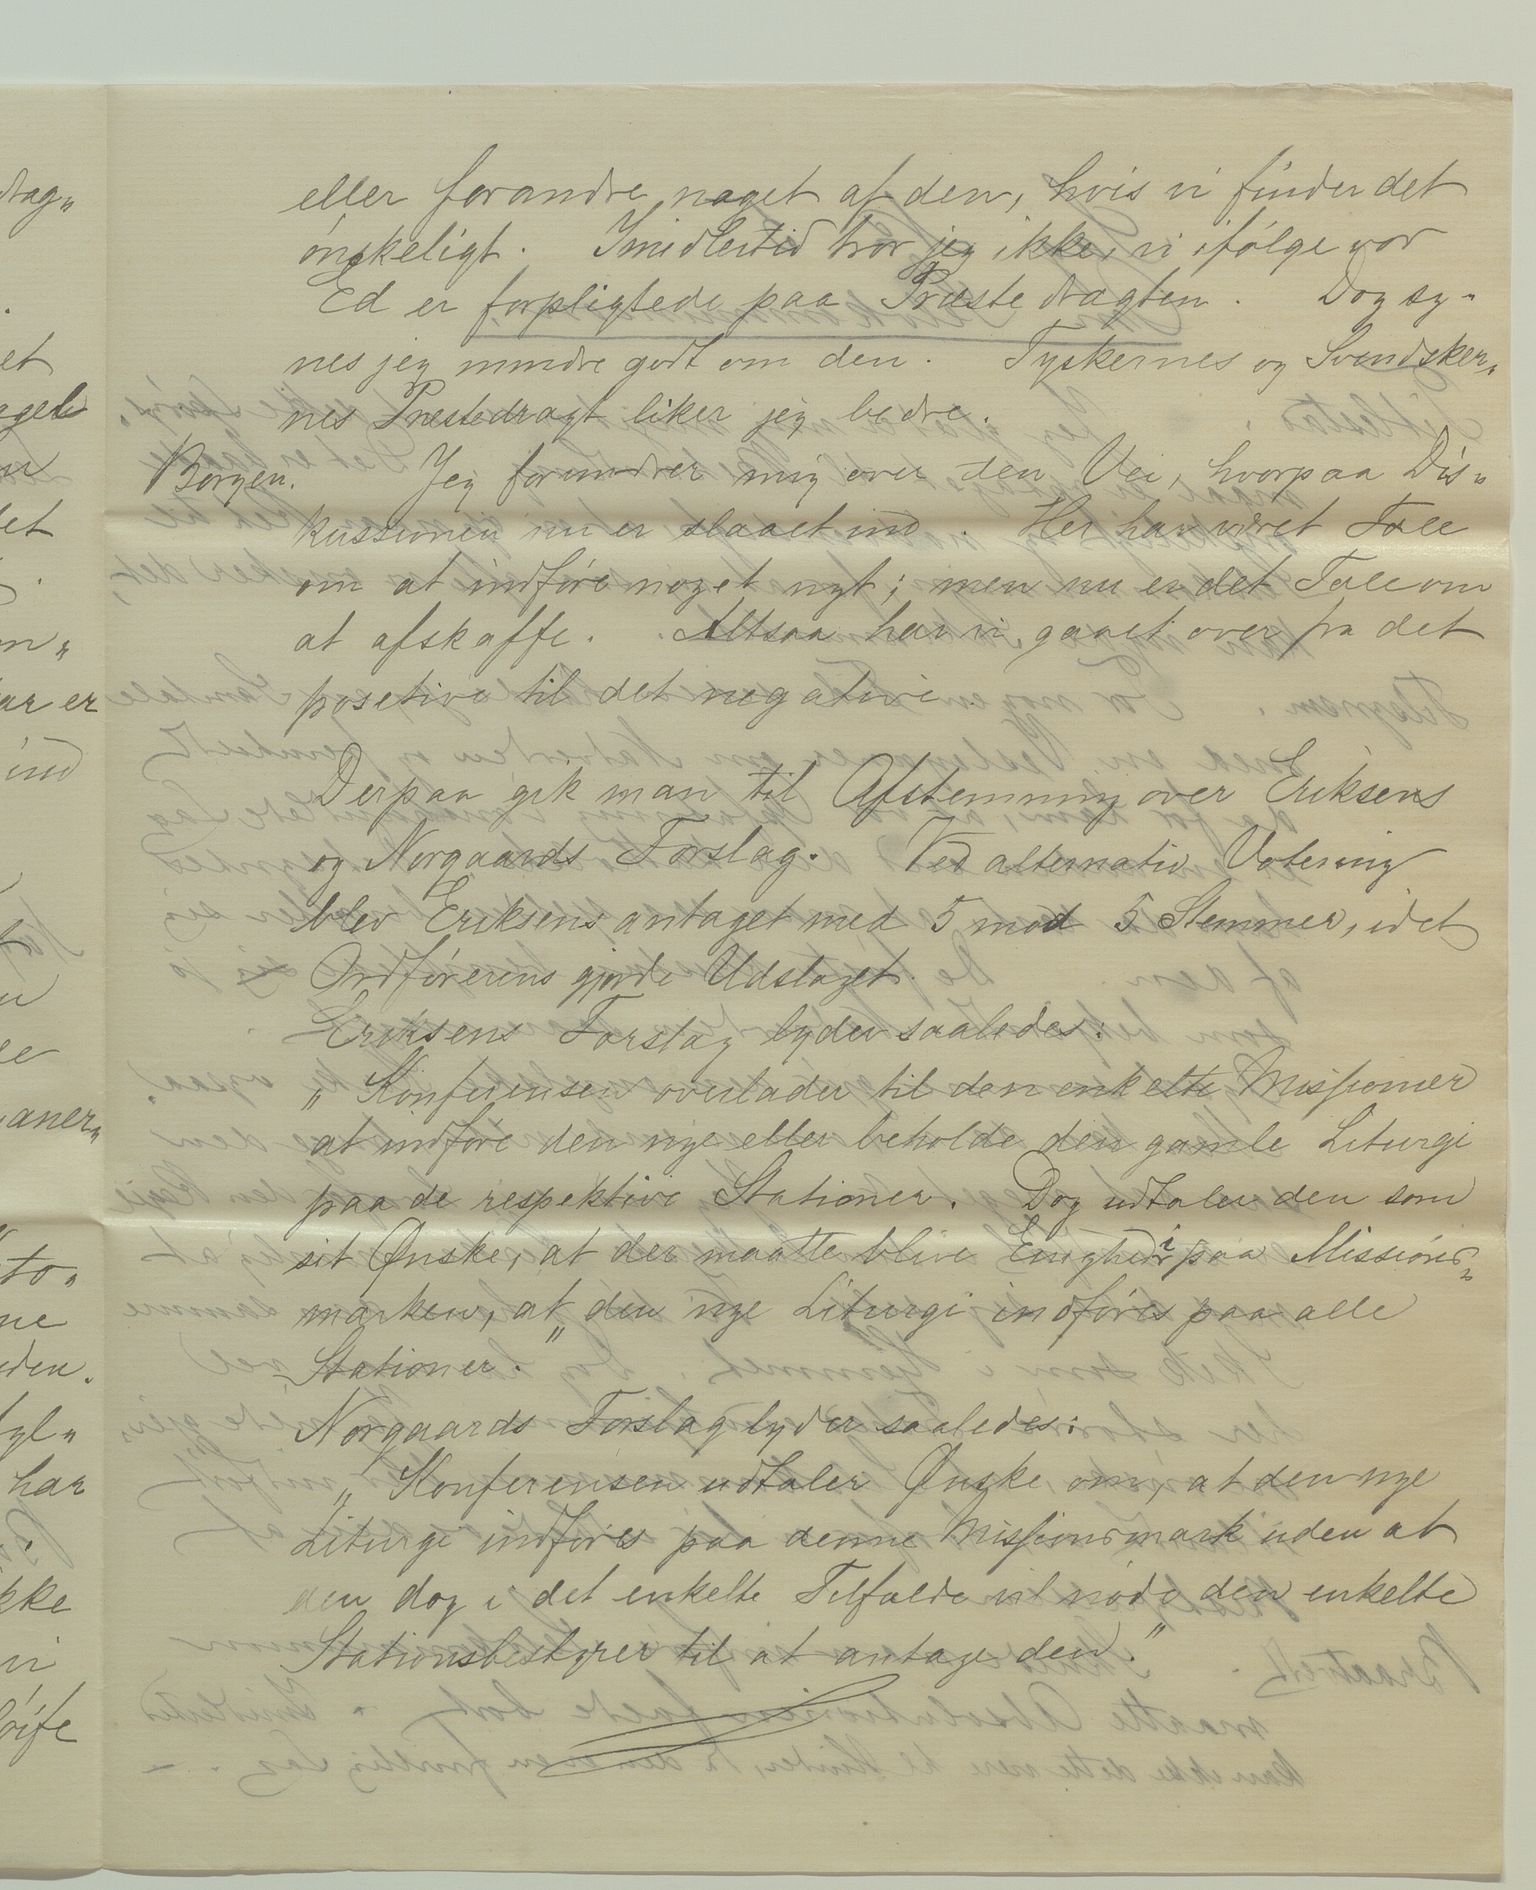 eller forandre noget af den, hvis vi finder det
ønskeligt. Imidlertid tror jeg ikke, vi ifølge vor
Ed er forpligtede paa Præstedragten. Dog sy-
nes jeg mindre godt om den. Tyskernes og Svendsker-
nes Præstedragt liker jeg bedre.
Borgen. Jeg forundrer mig over den Vei, hvorpaa Dis-
kussionen nu er slaaet ind. Her har været Tale
om at indføre noget nyt; men nu er det Tale om
at afskaffe. Altsaa har vi gaaet over fra det
posetive til det negative.
Derpaa gik man til Afstemning over Eriksens
og Norgaards Forslag. Ved alternativ Votering
blev Eriksens antaget med 5 mod 5 Stemmer, idet
Ordførerens gjorde Udslaget.
Eriksens Forslag lyder saaledes:
„Konferensen overlader til den enkelte Missionær
at indføre den nye eller beholde den gamle Liturgi
paa de respektive Stationer. Dog udtaler den som
sit Ønske, at der maatte blive Enighed i paa Missions-
marken, at den nye Liturgi indføres paa alle
Stationer.“
Norgaards Forslag lyder saaledes:
„Konferensen udtaler Ønske om, at den nye
Liturgi indføres paa denne Missionsmark uden at
den dog i det enkelte Tilfælde vil nøde den enkelte
Stationsbestyrer til at antage den.“
drag-
et
n
det
n-
ar er
ind
aner-
to-
ne
eden.
tyl-
har
ikke
vi